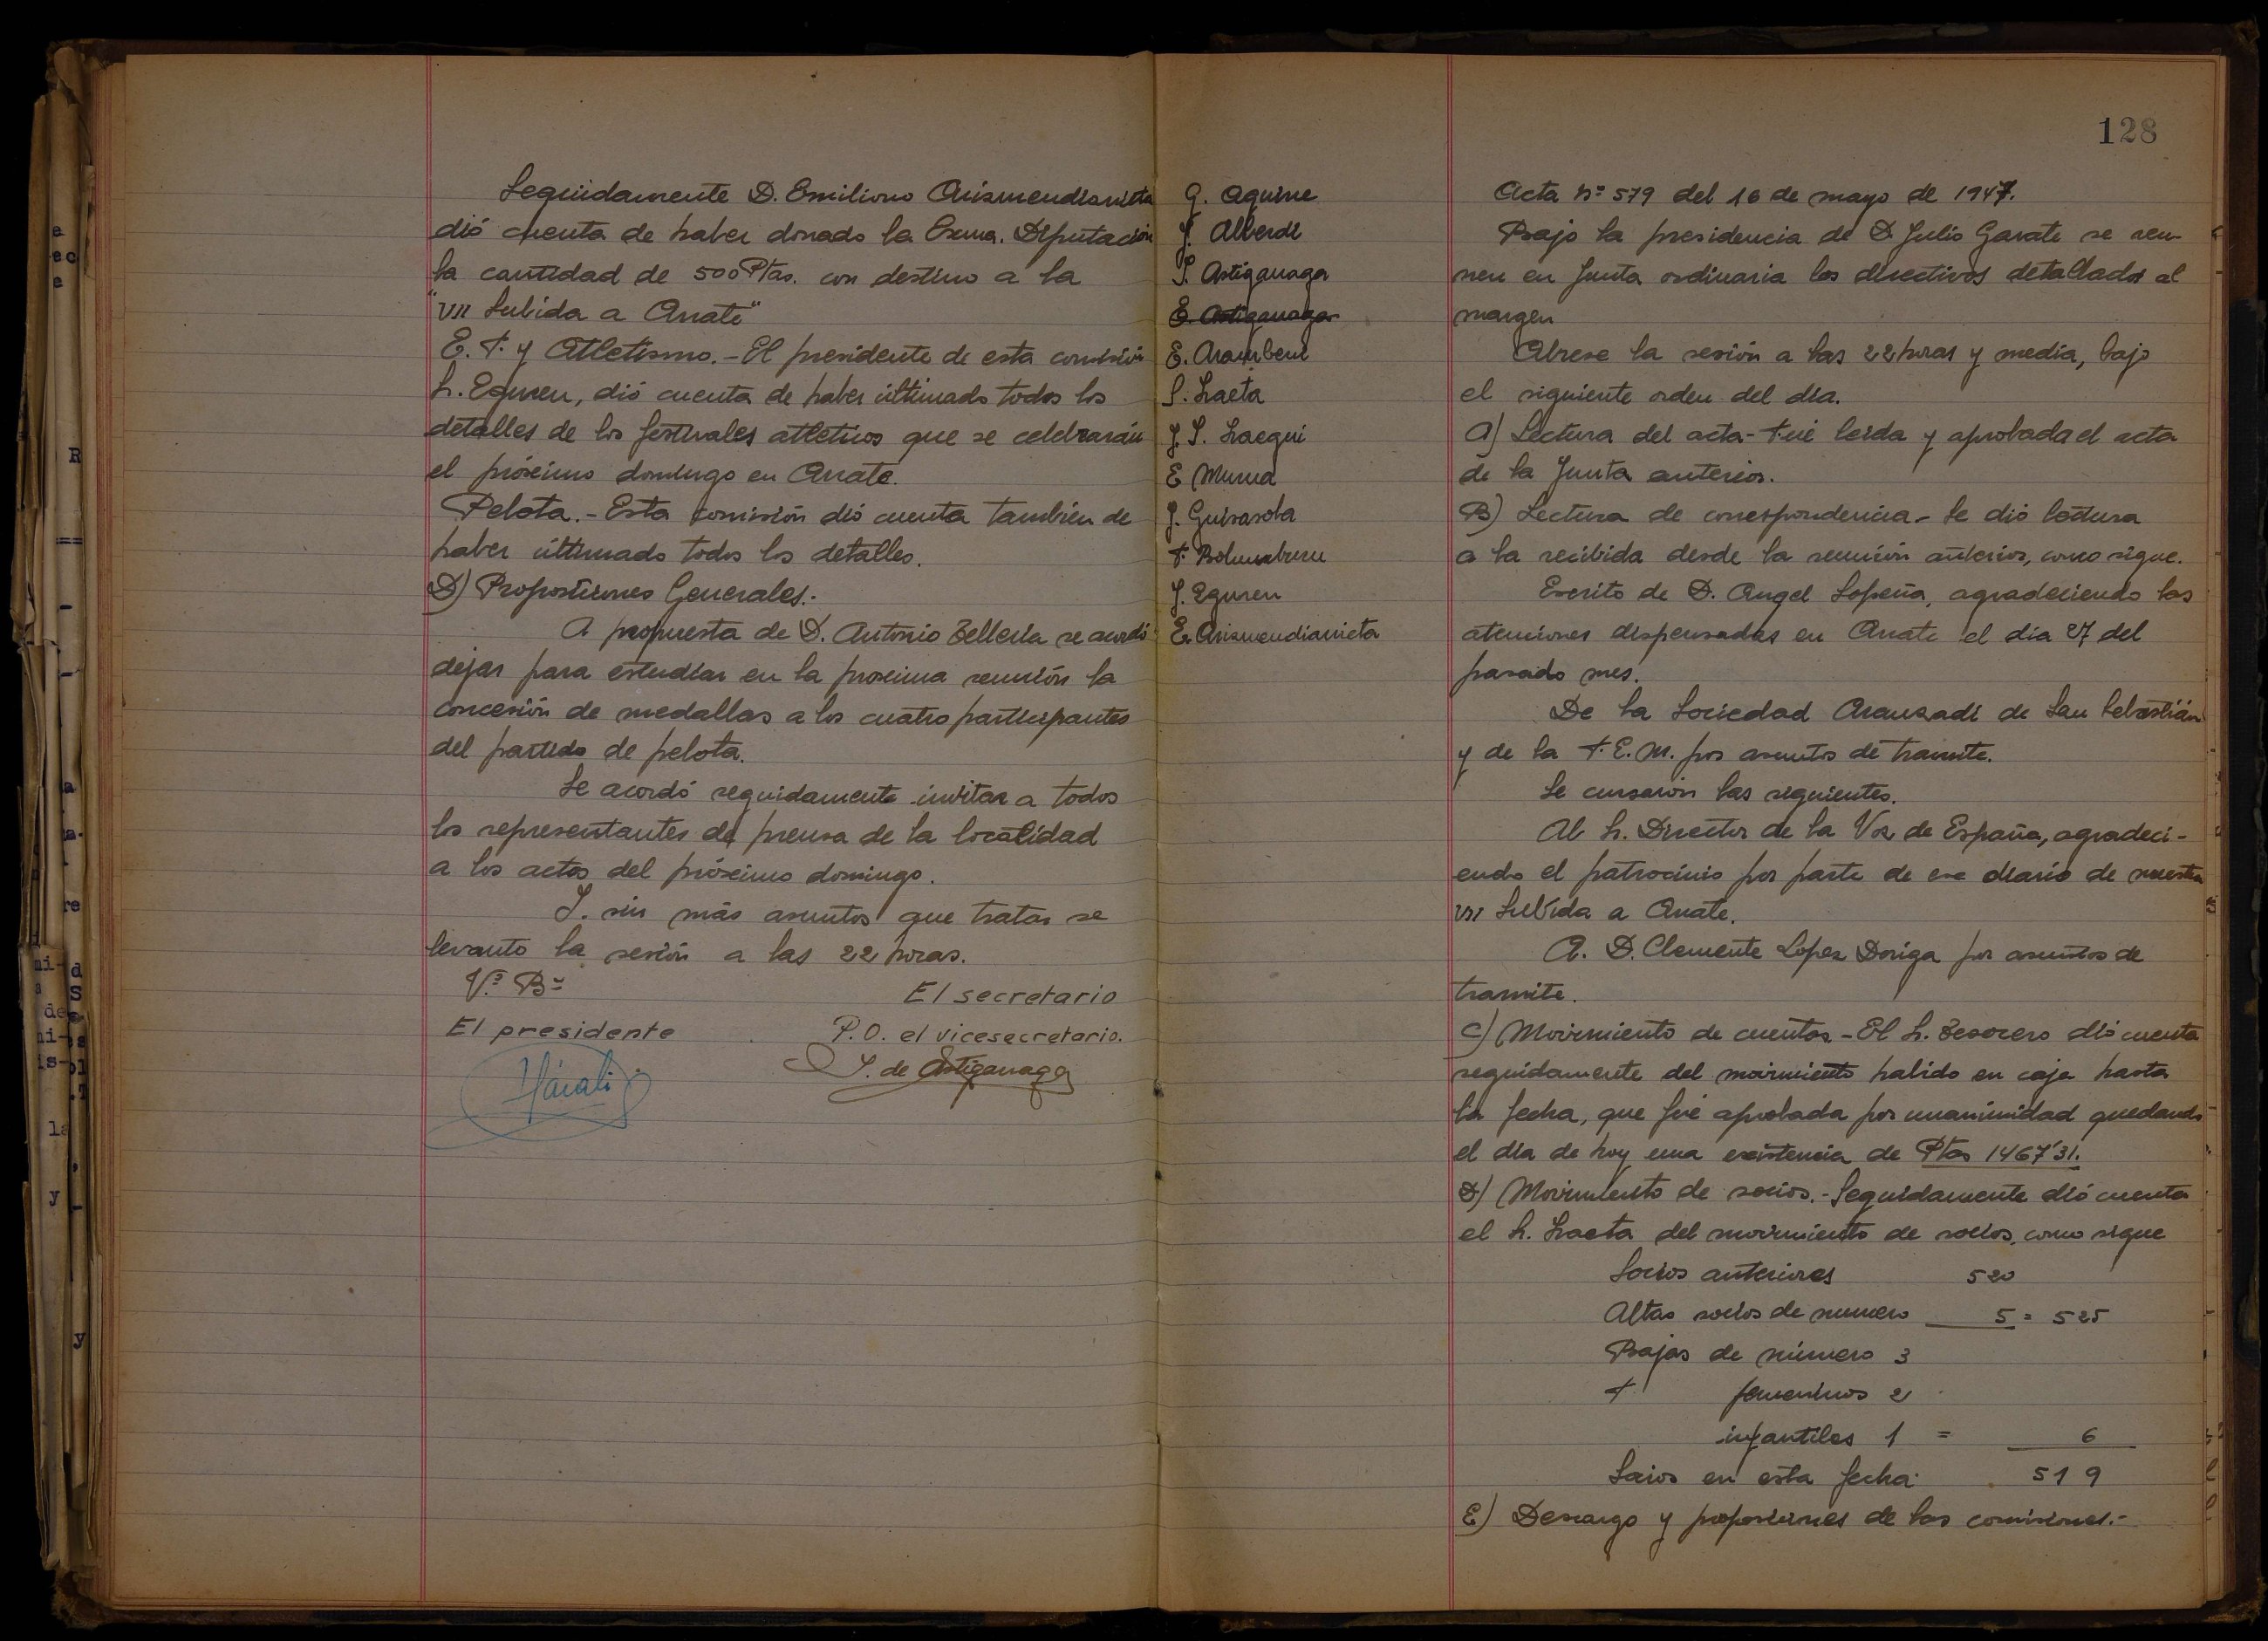 Seguidamente D. Emiliano Arismendiarrieta
dió cuenta de haber donado la Exma. Diputación
la cantidad de 500 Ptas. con destino a la
"VII Subida a Arrate"
E. F. y Atletismo.- El presidente de esta comisión
Sr. Eguren, dió cuenta de haber últimado todos los
detalles de los festivales atleticos que se celebrarán
el próximo domingo en Arrate.
Pelota.- Esta comisión dió cuenta también de
haber últimado todos los detalles.
D) Proposiciones Generales.-
A propuesta de D. Antonio Telleria se acordó
dejar para estudiar en la proxima reunión la
concesión de medallas a los cuatro participantes
del partido de pelota.
Se acordó seguidamente invitar a todos
los representantes de prensa de la localidad
a los actos del próximo domingo.
Y. sin más asuntos que tratar se
levanto la sesión a las 22 horas.
Vº Bº
El secretario
El presidente
P.O. el vicesecretario.
Y. de Astigarraga
G. Aguirre
J. Alberdi
Y. Astigarraga
E. Astigarraga
E. Aramberri
S. Iraeta
J. S. Iraegui
E Murua
J. Guisasola
F. Bolumburu
J. Eguren
E. Arismendiarrieta
128
Acta nº 579 del 16 de mayo de 1947.
Bajo la presidencia de D. Julio Garate se reu-
nen en Junta ordinaria los directivos detallados al
margen
Abrese la sesión a las 22 horas y media, bajo
el siguiente orden del día.
A) Lectura del acta- Fué leida y aprobada el acta
de la Junta anterior.
B) Lectura de correspondencia- Se dió lectura
a la recibida desde la reunión anterior, como sigue.
Escrito de D. Angel Sopeña, agradeciendo las
atenciones dispensadas en Arrate el día 27 del
pasado mes.
De la Sociedad Aranzadi de San Sebastián
y de la F.E.M. por asuntos de tramite.
Se cursaron las siguientes.
Al Sr. Director de la Voz de España, agradeci-
endo el patrocinio por parte de ese diario de nuestra
VII Subida a Arrate.
A. D. Clemente Lopez Doriga por asuntos de
tramite.
C) Movimiento de cuentas- El Sr. Tesorero dió cuenta
seguidamente del movimiento habido en caja hasta
la fecha, que fué aprobada por unanimidad quedando
el día de hoy una existencia de Ptas 1467'31.
D) Movimiento de socios.- Seguidamente dió cuenta
el Sr. Iraeta del movimiento de socios, como sigue
Socios anteriores 520
Altas socios de numero 5 = 525
Bajas de número 3
femeninos 2
infantiles 1 = 6
Socios en esta fecha. 519
E) Descargo y proposiciones de las comisiones.-